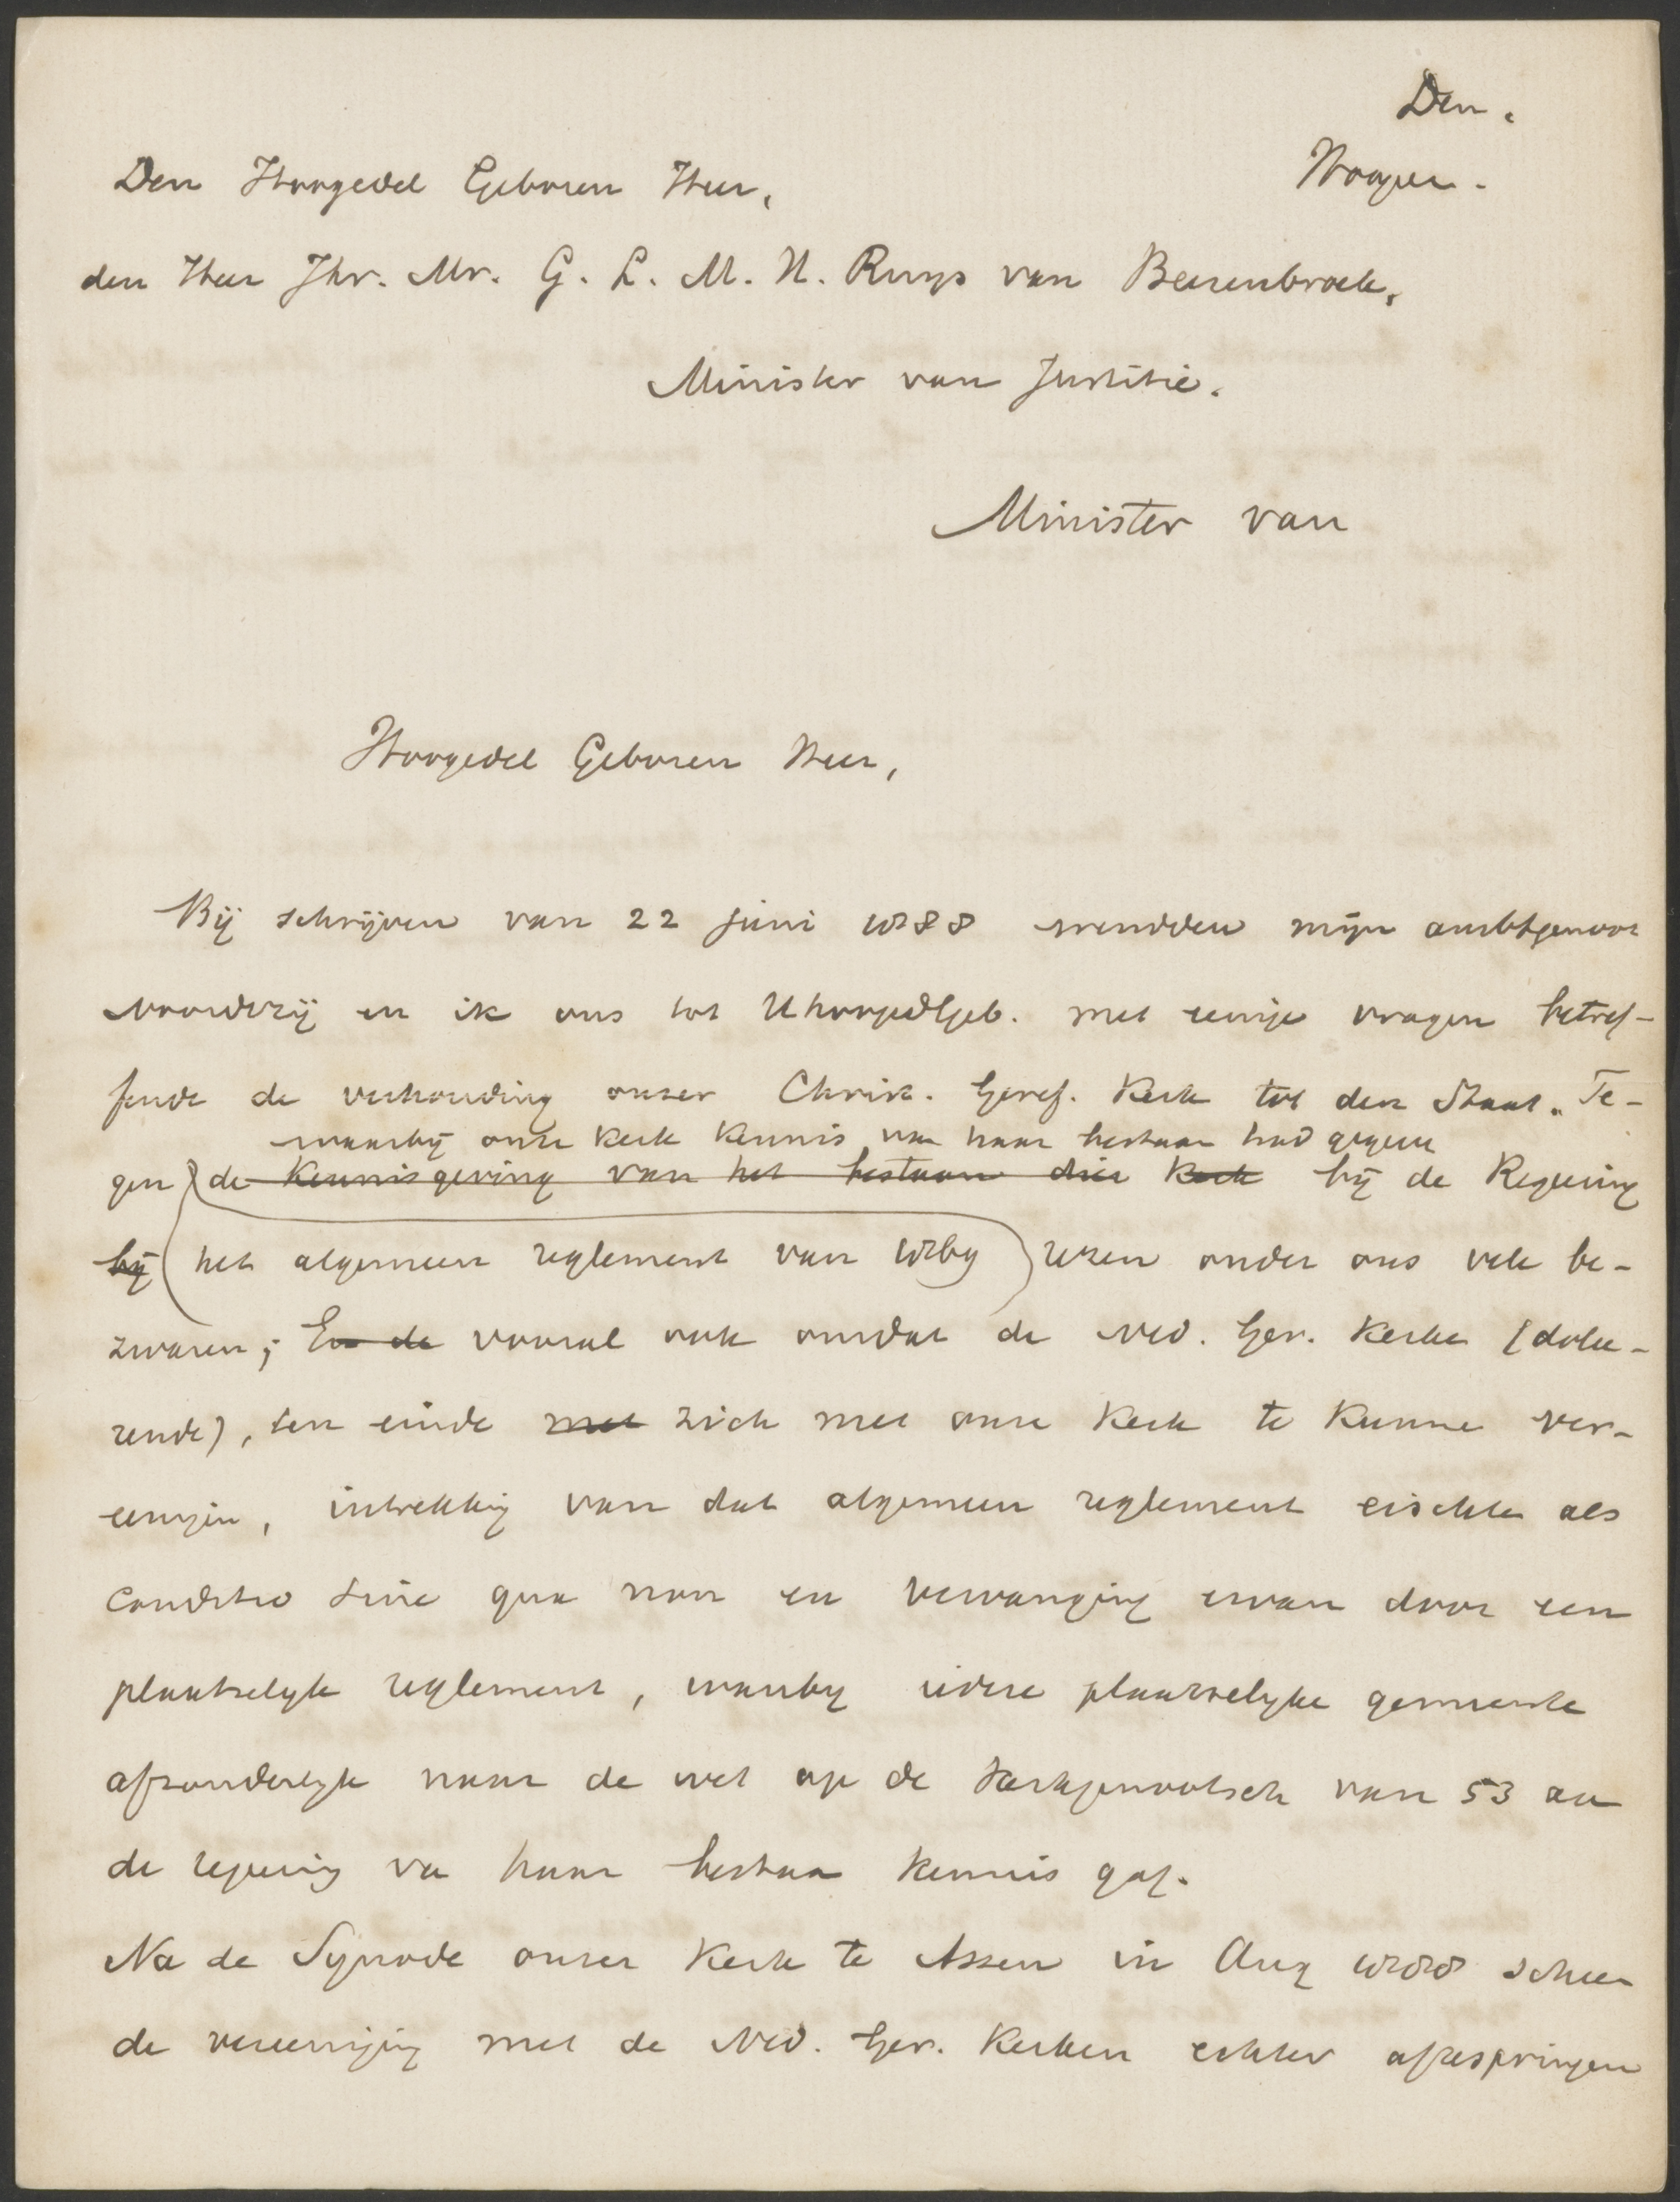 Den.
Hooger.
Den Hoogedel Geboren Heer,
den Heer Jhr. Mr. G. L. M. H. Ruys van Beerenbroek,
Minister van Justitie.
Minister van
Hoogedel Geboren Heer,
Bij schrijven van 22 juni 1888 wendden mijn ambtgenoot
Noordtzij en ik ons tot UhoogedlGeb. met eenige vragen betref-
fende de verhouding onzer Chrisr. Geref. Kerk tot den Staat. Te-
waarbij onze Kerk kennis van haar bestaan had gegeven
gen de kennisgeving van het bestaan dier Kerk bij de Regeering
bij (het algemeen reglement van 1869) rezen onder ons vele be-
zwaren; En de vooral ook omdat de Ned. Ger. Kerken (dolee-
rende), ten einde met zich met onze Kerk te kunne ver-
eenigen, intrekking van dat algemeen reglement eischten als
conditio sine qua non en vervanging ervan door een
plaatselijk reglement, waarbij iedere plaatselijke gemeente
afzonderlijk naar de wet op de Kerkgenootsch van 53 aan
de regeering van haar bestaan kennis gaf.
Na de Synode onzer Kerk te Assen in Aug 1888 scheen
de vereeniging met de Ned. Ger. Kerken echter aftespringen